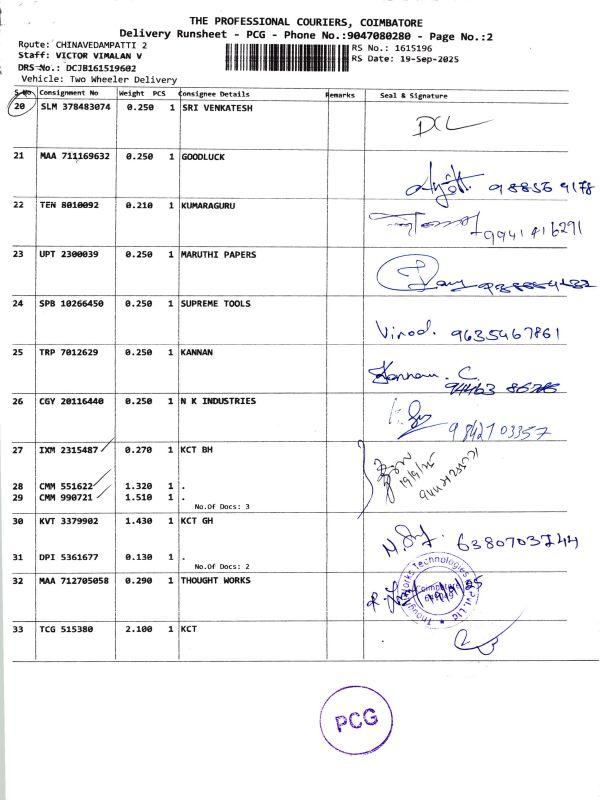 THE PROFESSIONAL COURIERS, COIMBATORE
Delivery Runsheet - PCG - Phone No.:9047080280 - Page No.:2
Route: CHINAVEDAMPATTI 2
RS No.: 1615196
Staff: VICTOR VIMALAN V
RS Date: 19-Sep-2025
DRS No.: DCJB161519602
Vehicle: Two Wheeler Delivery
S No. Consignment No Weight PCS Consignee Details Remarks Seal & Signature
20 SLM 378483074 0.250 1 SRI VENKATESH DCL
21 MAA 711169632 0.250 1 GOODLUCK
22 TEN 8010092 0.210 1 KUMARAGURU 9941416291
23 UPT 2300039 0.250 1 MARUTHI PAPERS
24 SPB 10266450 0.250 1 SUPREME TOOLS Vinod. 9635467861
25 TRP 7012629 0.250 1 KANNAN Kannan . C.
26 CGY 20116440 0.250 1 N K INDUSTRIES 9842703357
27 IXM 2315487 0.270 1 KCT BH
19/9/25
28 CMM 551622 1.320 1 .
29 CMM 990721 1.510 1 .
No.Of Docs: 3
30 KVT 3379902 1.430 1 KCT GH 6380703744
31 DPI 5361677 0.130 1 .
No.Of Docs: 2
32 MAA 712705058 0.290 1 THOUGHT WORKS
Thoughtworks Technologies Pvt. Ltd
33 TCG 515380 2.100 1 KCT
PCG